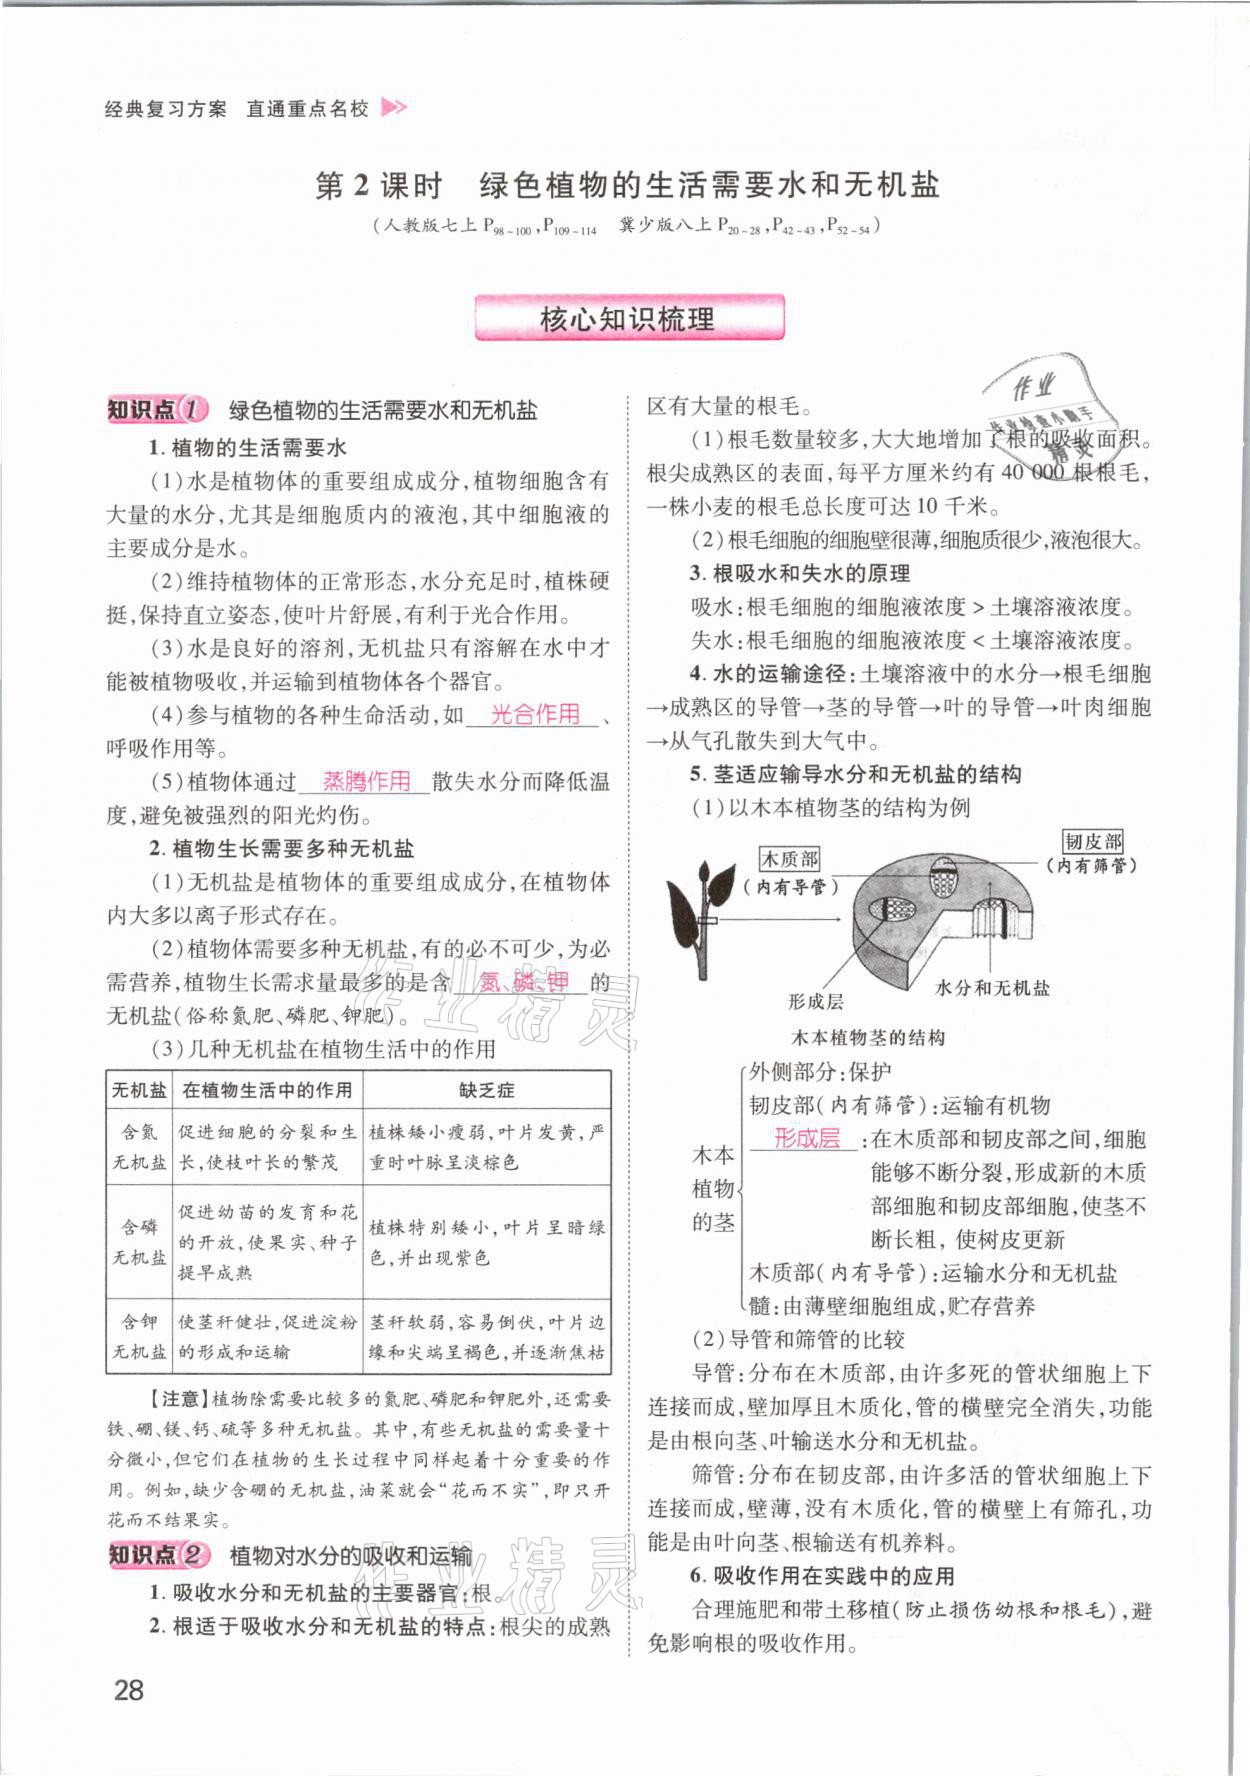 经典复习方案 直通重点名校
第2课时 绿色植物的生活需要水和无机盐
(人教版七上P98~100,P109~114 冀少版八上P20~28,P42~43,P52~54)
核心知识梳理
知识点1 绿色植物的生活需要水和无机盐
1. 植物的生活需要水
(1)水是植物体的重要组成成分,植物细胞含有
大量的水分,尤其是细胞质内的液泡,其中细胞液的
主要成分是水。
(2)维持植物体的正常形态,水分充足时,植株硬
挺,保持直立姿态,使叶片舒展,有利于光合作用。
(3)水是良好的溶剂,无机盐只有溶解在水中才
能被植物吸收,并运输到植物体各个器官。
(4)参与植物的各种生命活动,如 光合作用 、
呼吸作用等。
(5)植物体通过 蒸腾作用 散失水分而降低温
度,避免被强烈的阳光灼伤。
2. 植物生长需要多种无机盐
(1)无机盐是植物体的重要组成成分,在植物体
内大多以离子形式存在。
(2)植物体需要多种无机盐,有的必不可少,为必
需营养,植物生长需求量最多的是含 氮、磷、钾 的
无机盐(俗称氮肥、磷肥、钾肥)。
(3)几种无机盐在植物生活中的作用
无机盐 在植物生活中的作用 缺乏症
含氮
无机盐
促进细胞的分裂和生
长,使枝叶长的繁茂
植株矮小瘦弱,叶片发黄,严
重时叶脉呈淡棕色
含磷
无机盐
促进幼苗的发育和花
的开放,使果实、种子
提早成熟
植株特别矮小,叶片呈暗绿
色,并出现紫色
含钾
无机盐
使茎秆健壮,促进淀粉
的形成和运输
茎秆软弱,容易倒伏,叶片边
缘和尖端呈褐色,并逐渐焦枯
【注意】植物除需要比较多的氮肥、磷肥和钾肥外,还需要
铁、硼、镁、钙、硫等多种无机盐。其中,有些无机盐的需要量十
分微小,但它们在植物的生长过程中同样起着十分重要的作
用。例如,缺少含硼的无机盐,油菜就会“花而不实”,即只开
花而不结果实。
知识点2 植物对水分的吸收和运输
1. 吸收水分和无机盐的主要器官:根。
2. 根适于吸收水分和无机盐的特点:根尖的成熟
区有大量的根毛。
(1)根毛数量较多,大大地增加了根的吸收面积。
根尖成熟区的表面,每平方厘米约有40 000根根毛,
一株小麦的根毛总长度可达10千米。
(2)根毛细胞的细胞壁很薄,细胞质很少,液泡很大。
3. 根吸水和失水的原理
吸水:根毛细胞的细胞液浓度>土壤溶液浓度。
失水:根毛细胞的细胞液浓度<土壤溶液浓度。
4. 水的运输途径:土壤溶液中的水分→根毛细胞
→成熟区的导管→茎的导管→叶的导管→叶肉细胞
→从气孔散失到大气中。
5. 茎适应输导水分和无机盐的结构
(1)以木本植物茎的结构为例
木质部
(内有导管)
韧皮部
(内有筛管)
形成层
水分和无机盐
木本植物茎的结构
木本
植物
的茎
外侧部分:保护
韧皮部(内有筛管):运输有机物
形成层 :在木质部和韧皮部之间,细胞
能够不断分裂,形成新的木质
部细胞和韧皮部细胞,使茎不
断长粗,使树皮更新
木质部(内有导管):运输水分和无机盐
髓:由薄壁细胞组成,贮存营养
(2)导管和筛管的比较
导管:分布在木质部,由许多死的管状细胞上下
连接而成,壁加厚且木质化,管的横壁完全消失,功能
是由根向茎、叶输送水分和无机盐。
筛管:分布在韧皮部,由许多活的管状细胞上下
连接而成,壁薄,没有木质化,管的横壁上有筛孔,功
能是由叶向茎、根输送有机养料。
6. 吸收作用在实践中的应用
合理施肥和带土移植(防止损伤幼根和根毛),避
免影响根的吸收作用。
28
作业
作业检查小助手
精灵
作业精灵
作业精灵